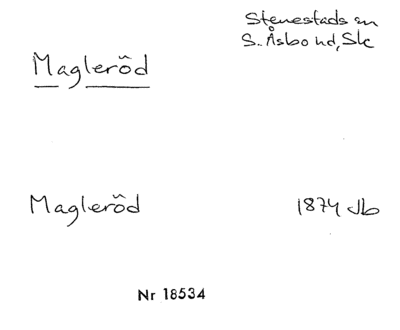 Stenestads sn
S. Åsbo hd, Sk
Magleröd
Magleröd 1874 Jb
Nr 18534